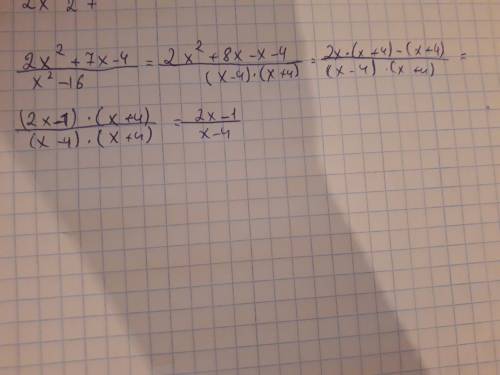 (2x²+7x-4)/(x²-16) = (2x²+8x-x-4)/((x-4)·(x+4)) = (2x·(x+4)-(x+4))/((x-4)·(x+4)) =
((2x-1)·(x+4))/((x-4)·(x+4)) = (2x-1)/(x-4)